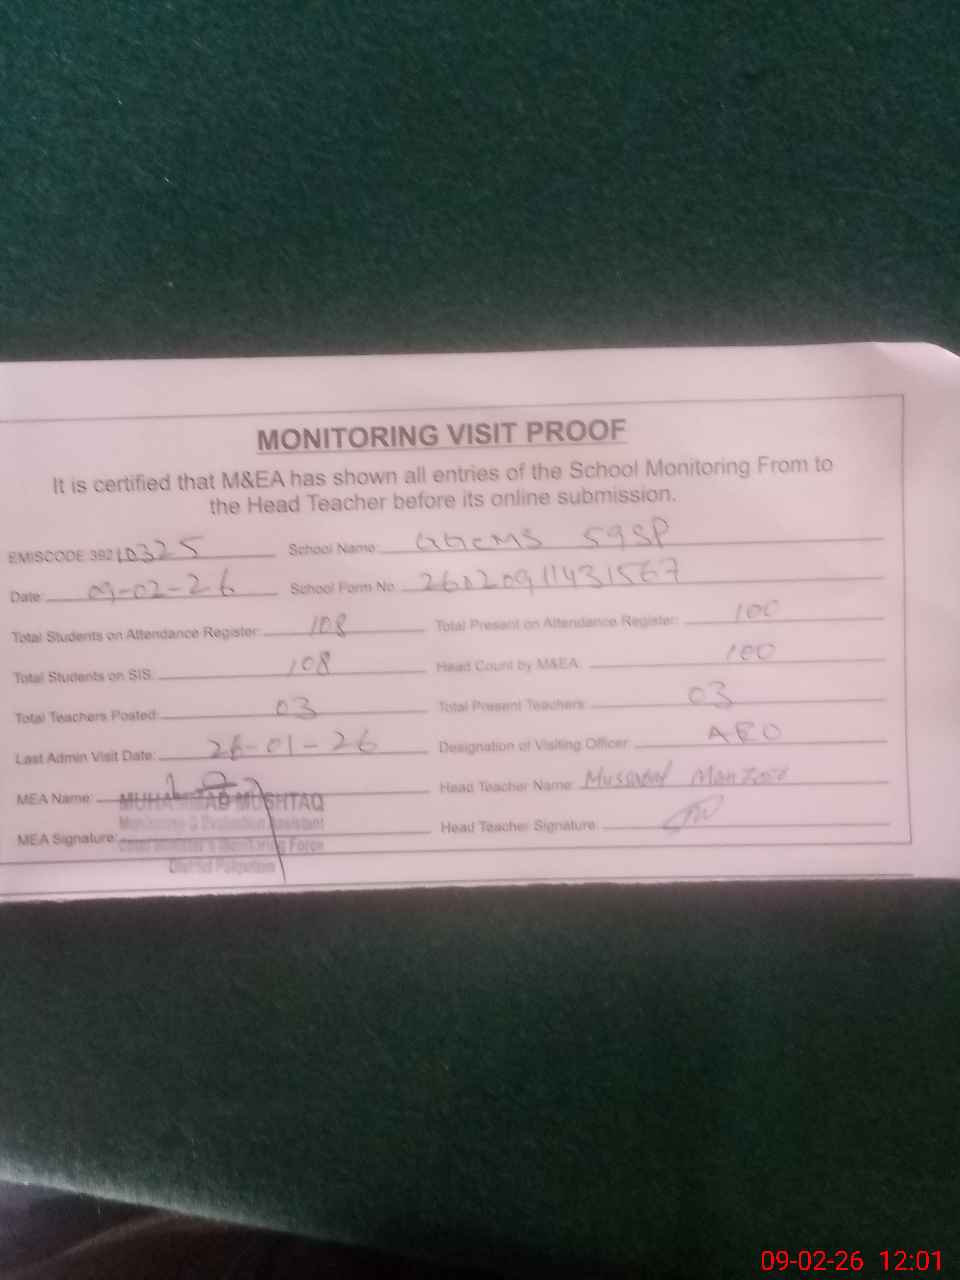 MONITORING VISIT PROOF
It is certified that M&EA has shown all entries of the School Monitoring From to
the Head Teacher before its online submission.
EMISCODE 39210325 School Name: GGCMS 59SP
Date: 09-02-26 School Form No. 26020911431567
Total Students on Attendance Register: 108 Total Present on Attendance Register: 100
Total Students on SIS: 108 Head Count by M&EA: 100
Total Teachers Posted: 03 Total Present Teachers: 03
Last Admin Visit Date: 26-01-26 Designation of Visiting Officer: AEO
MEA Name: MUHAMMAD MUSHTAQ Head Teacher Name:
Monitoring & Evaluation Assistant
MEA Signature: Monitoring Force Head Teacher Signature:
District Pakpattan
09-02-26 12:01